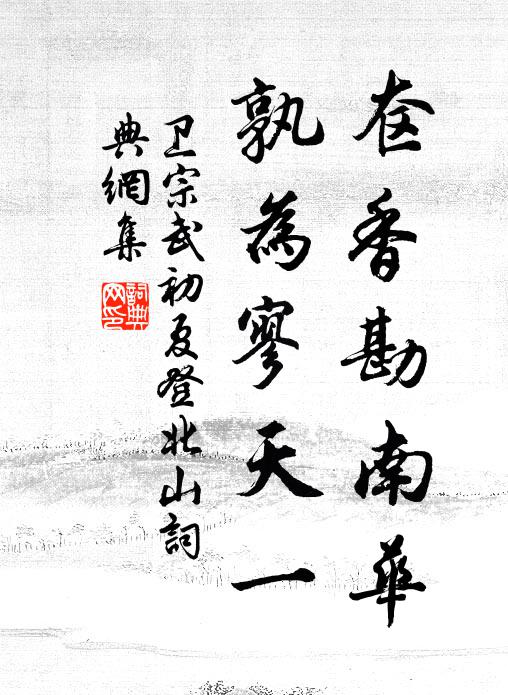 奁香勘南華
孰為寥天一
卫宗武初夏登北山詞
典網集
詞典
网印